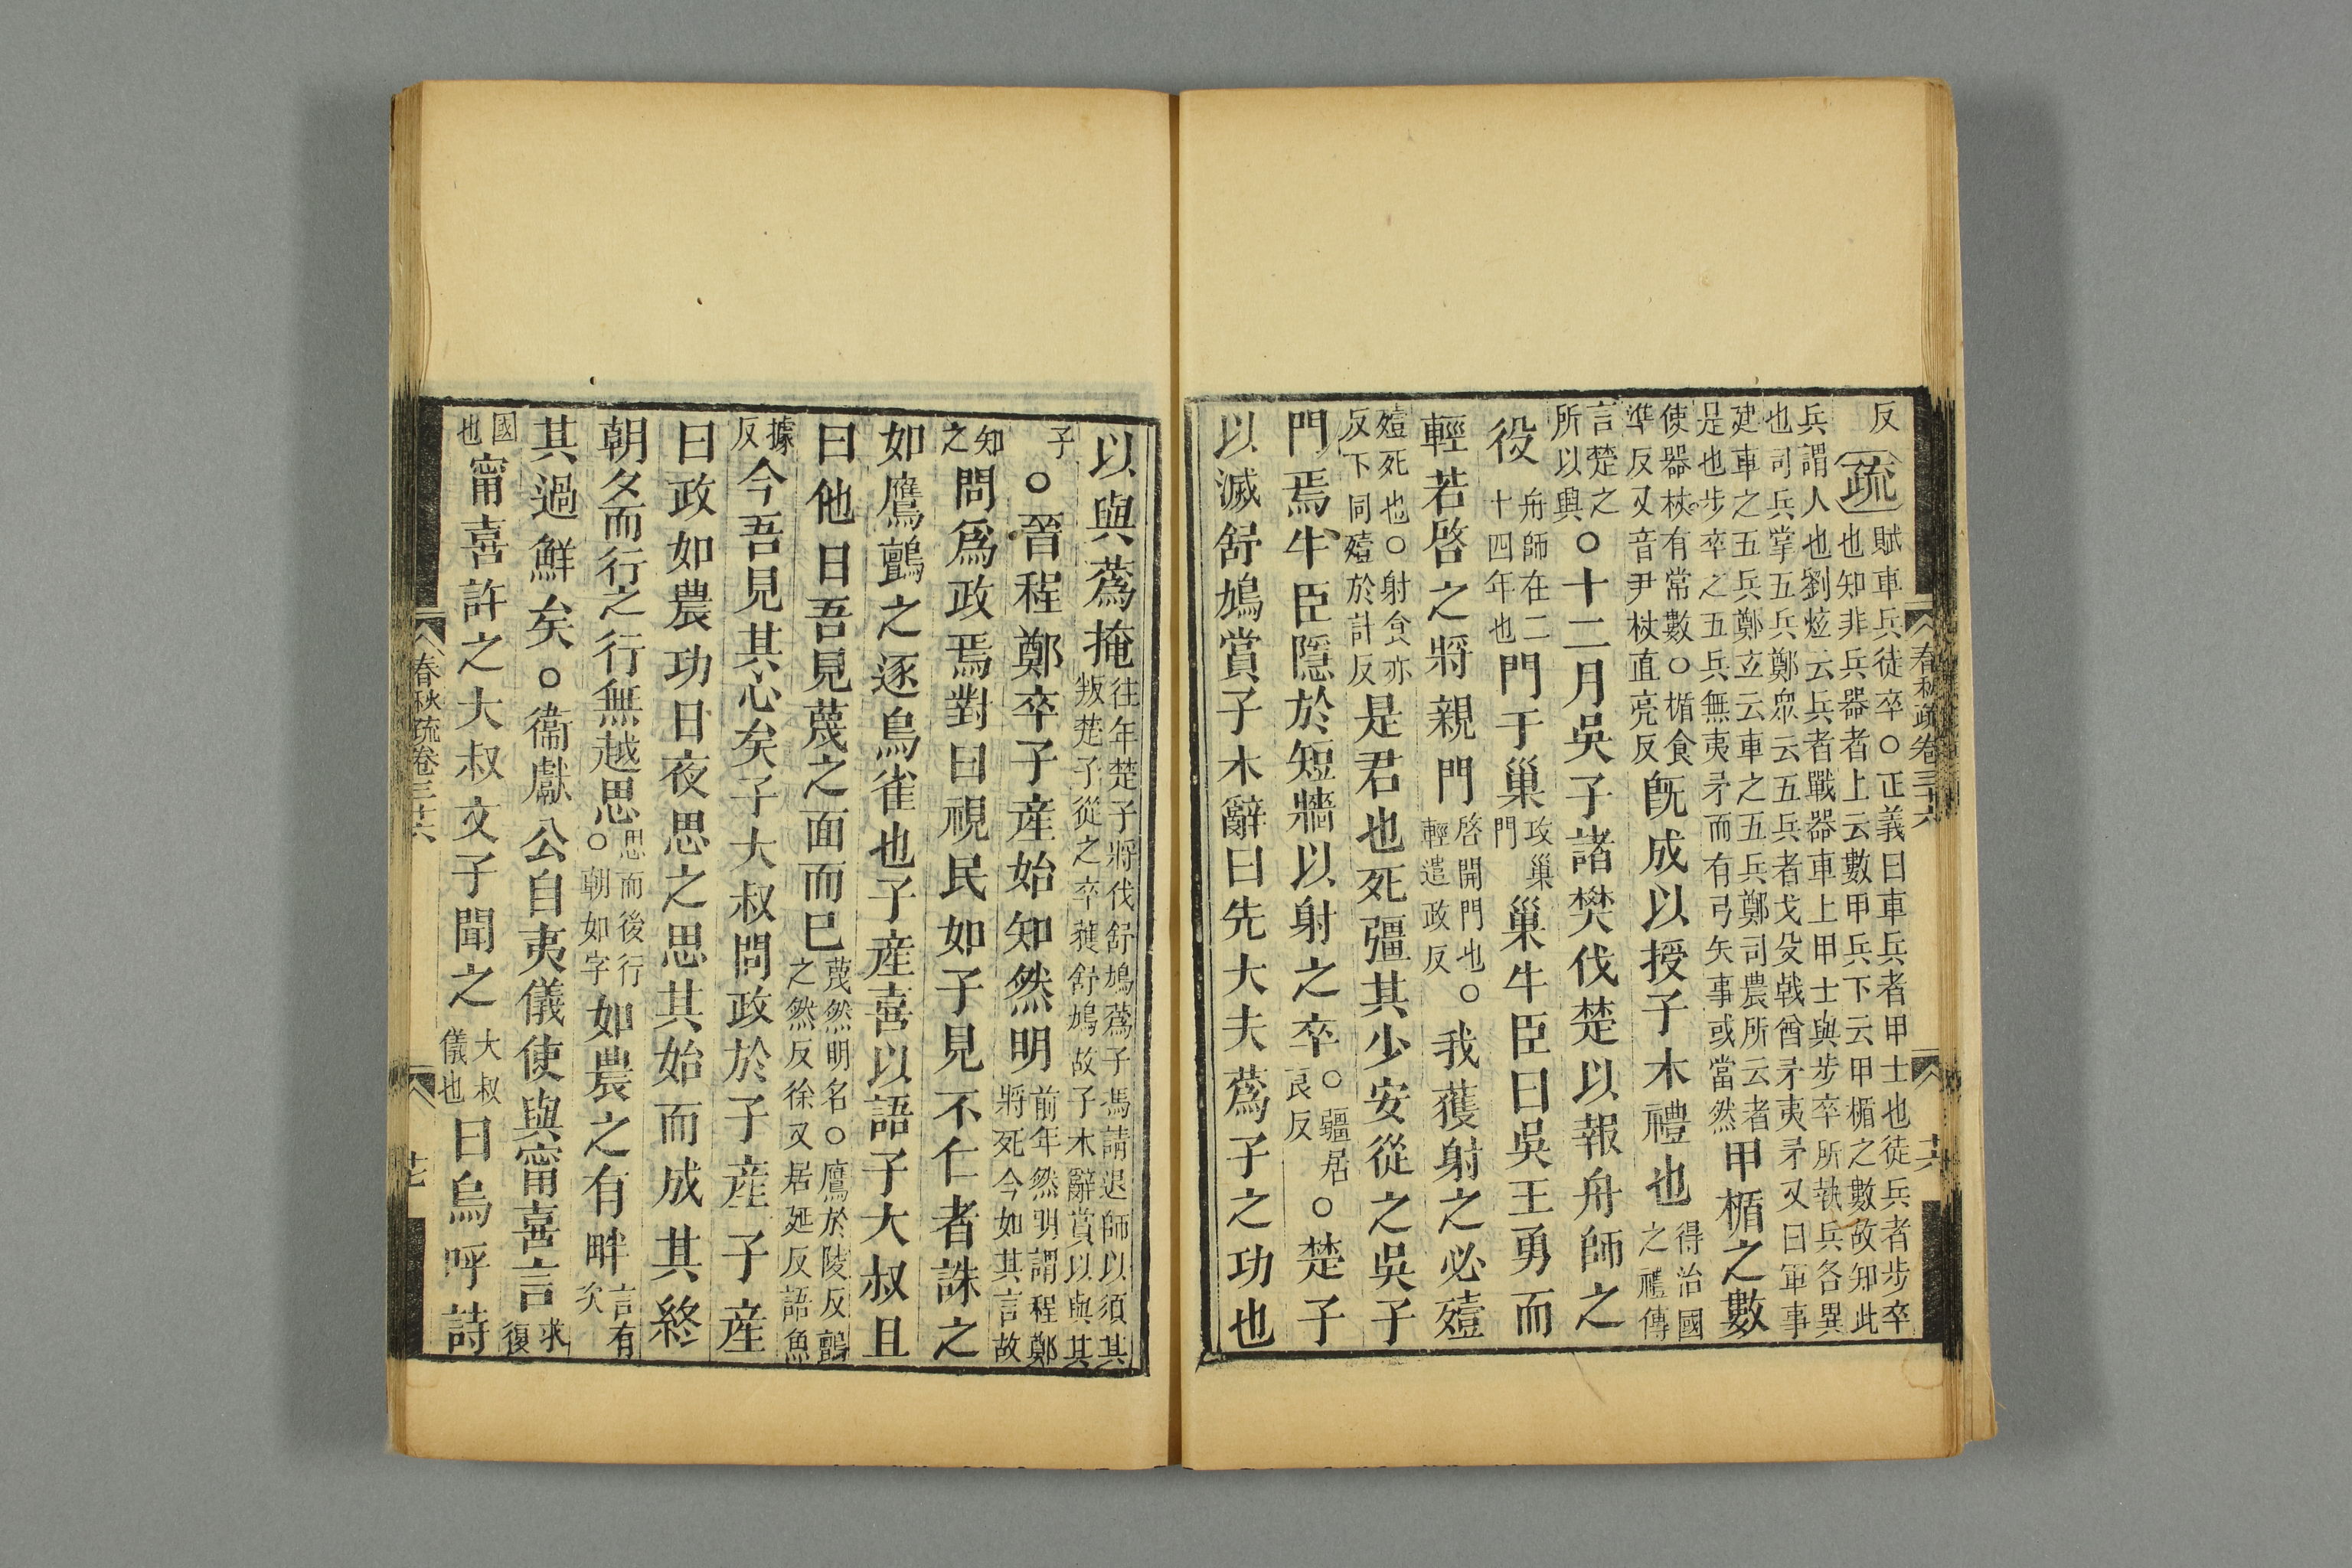 反疏賦車兵徒卒○正義曰車兵者甲士也徒兵者步卒
也知非兵器者上云數甲兵下云甲楯之數故知此
兵謂人也劉炫云兵者戰器車上甲士與步卒所執兵各異
也司兵掌五兵鄭眾云五兵者戈殳戟酋矛夷矛又曰軍事
建車之五兵鄭玄云車之五兵鄭司農所云者
是也步卒之五兵無夷矛而有弓矢事或當然甲楯之數
使器杖有常數○楯食
準反又音尹杖直亮反既成以授子木禮也得治國之禮傳
言楚之所以興○十二月吳子諸樊伐楚以報舟師之
役舟師在二十四年也門于巢攻巢門巢牛臣曰吳王勇而
輕若啓之將親門啓開門也○輕遣政反我獲射之必殪
殪死也○射食亦反下同殪於計反是君也死彊其少安從之吳子
門焉牛臣隱於短牆以射之卒○疆居良反○楚子
以滅舒鳩賞子木辭曰先大夫蒍子之功也
以與蒍掩往年楚子將伐舒鳩蒍子馮請退師以須其
叛楚子從之卒獲舒鳩故子木辭賞以與其
子○晉程鄭卒子產始知然明前年然明謂程鄭將死今如其言故
知之問為政焉對曰視民如子見不仁者誅之
如鷹鸇之逐鳥雀也子產喜以語子大叔且
曰他日吾見蔑之面而已蔑然明名○鷹於陵反鸇
之然反徐又居延反語魚
據反今吾見其心矣子大叔問政於子產子產
曰政如農功日夜思之思其始而成其終
朝夕而行之行無越思思而後行○朝如字如農之有畔言有次
其過鮮矣○衞獻公自夷儀使與甯喜言求復
國也甯喜許之大叔文子聞之大叔儀也曰烏呼詩
春秋疏卷三十六